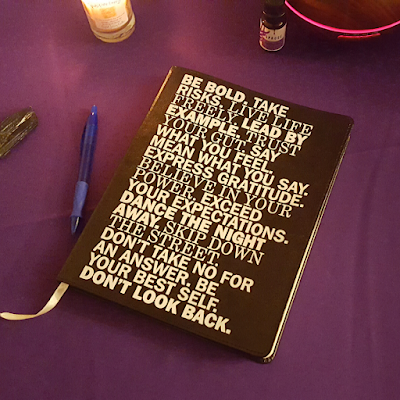 BE BOLD. TAKE
RISKS. LIVE LIFE
FREELY. LEAD BY
EXAMPLE. TRUST
YOUR GUT. SAY
WHAT YOU FEEL.
MEAN WHAT YOU SAY.
EXPRESS GRATITUDE.
BELIEVE IN YOUR
POWER. EXCEED
YOUR EXPECTATIONS.
DANCE THE NIGHT
AWAY. SKIP DOWN
THE STREET.
DON'T TAKE NO FOR
AN ANSWER. BE
YOUR BEST SELF.
DON'T LOOK BACK.